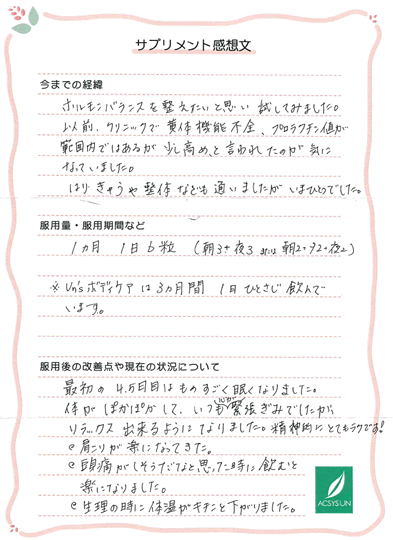 サプリメント感想文
今までの経緯
ホルモンバランスを整えたいと思い 試してみました。
以前、クリニックで黄体機能不全、プロラクチン値が
範囲内ではあるが少し高めと言われたのが気に
なっていました。
はりきゅうや整体なども通いましたがいまひとつでした。
服用量・服用期間など
1ヵ月 1日6粒 (朝3+夜3 または 朝2+夕2+夜2)
※Un'sボディケアは3ヵ月間 1日ひとさじ飲んで
います。
服用後の改善点や現在の状況について
最初の4,5日目はものすごく眠くなりました。
体がぽかぽかして、いつも緊張ぎみでしたが
リラックス出来るようになりました。精神的にとてもラクです!
肩こりが楽になってきた。
頭痛がしそうだなと思った時に飲むと
楽になりました。
生理の時に体温がキチンと下がりました。
ACSYSUN